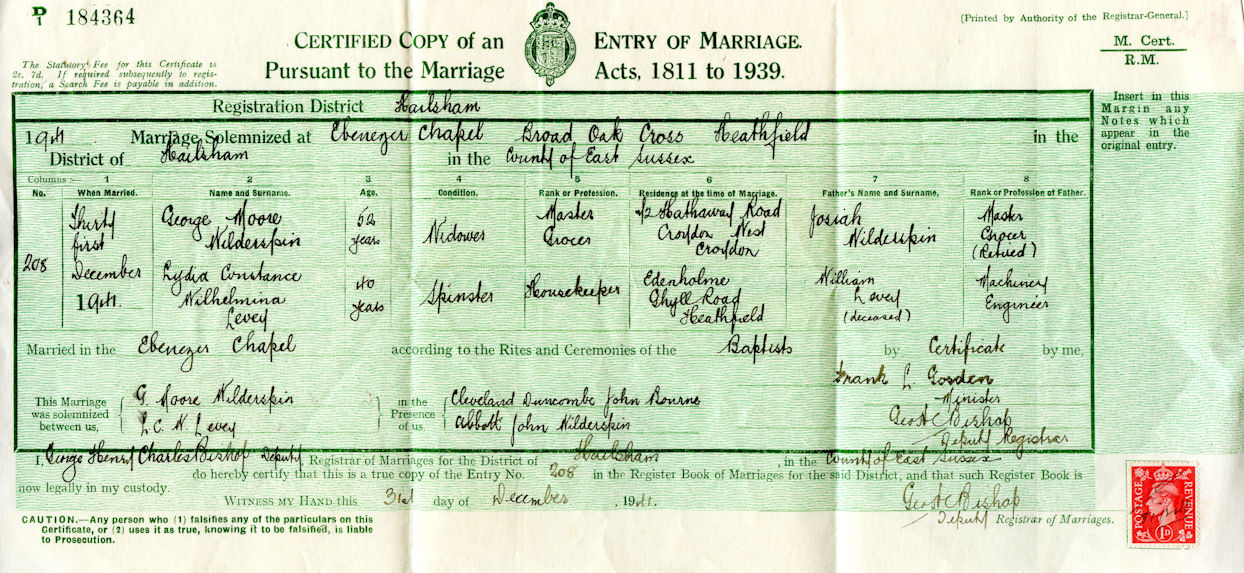 D/1 184364
[Printed by Authority of the Registrar-General.]
CERTIFIED COPY of an ENTRY OF MARRIAGE.
Pursuant to the Marriage Acts, 1811 to 1939.
M. Cert.
R.M.
The Statutory Fee for this Certificate is
2s. 7d. If required subsequently to regis-
tration, a Search Fee is payable in addition.
Insert in this
Margin any
Notes which
appear in the
original entry.
Registration District Hailsham
1941 Marriage Solemnized at Ebenezer Chapel Broad Oak Cross Heathfield in the
District of Hailsham in the County of East Sussex
Columns :— 1 2 3 4 5 6 7 8
No. When Married. Name and Surname. Age. Condition. Rank or Profession. Residence at the time of Marriage. Father's Name and Surname. Rank or Profession of Father.
208
Thirty
first
December
1941.
George Moore
Wilderspin
52
years
Widower
Master
Grocer
42 Hathaway Road
Croydon West
Croydon
Josiah
Wilderspin
Master
Grocer
(Retired)
Lydia Constance
Wilhelmina
Levey
40
years
Spinster
Housekeeper
Edenholme
Ghyll Road
Heathfield
William
Levey
(deceased)
Machinery
Engineer
Married in the Ebenezer Chapel according to the Rites and Ceremonies of the Baptists by Certificate by me,
Frank L. Gosden
Minister
This Marriage
was solemnized
between us,
G. Moore Wilderspin
L. C. W. Levey
in the
Presence
of us,
Cleveland Duncombe John Bourne
Abbott John Wilderspin
Geo H C Bishop
Deputy Registrar
I, George Henry Charles Bishop Deputy Registrar of Marriages for the District of Hailsham, in the County of East Sussex
do hereby certify that this is a true copy of the Entry No. 208 in the Register Book of Marriages for the said District, and that such Register Book is
now legally in my custody.
WITNESS MY HAND this 31st day of December, 1941.
Geo H C Bishop
Deputy Registrar of Marriages.
CAUTION.—Any person who (1) falsifies any of the particulars on this
Certificate, or (2) uses it as true, knowing it to be falsified, is liable
to Prosecution.
POSTAGE
REVENUE
1D